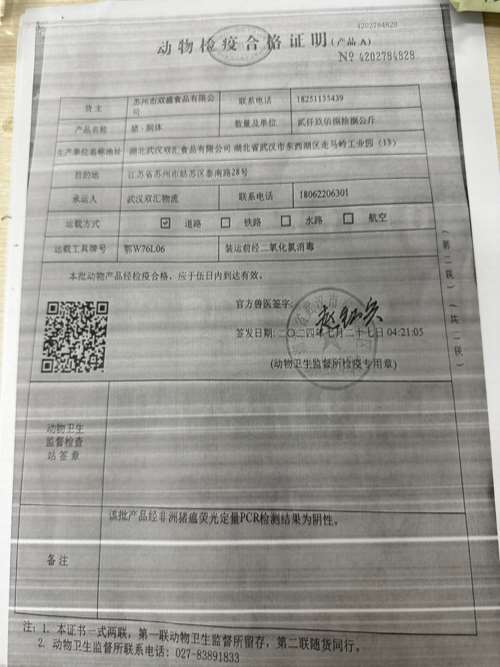 4202784828
动物检疫合格证明(产品 A)
№ 4202784828
货主
苏州市双盛食品有限公
司
联系电话
18251133439
产品名称
猪·胴体
数量及单位
贰仟玖佰捌拾捌公斤
生产单位名称地址
湖北武汉双汇食品有限公司 湖北省武汉市东西湖区走马岭工业园 (13)
目的地
江苏省苏州市姑苏区泰南路28号
承运人
武汉双汇物流
联系电话
18062206301
运载方式
☑ 道路 □ 铁路 □ 水路 □ 航空
运载工具牌号
鄂W76L06
装运前经二氧化氯消毒
本批动物产品经检疫合格，应于伍日内到达有效。
官方兽医签字:
签发日期:二〇二四年七月二十七日 04:21:05
(动物卫生监督所检疫专用章)
(第二联)(共二联)
动物卫生
监督检查
站签章
备注
该批产品经非洲猪瘟荧光定量PCR检测结果为阴性。
注: 1. 本证书一式两联，第一联动物卫生监督所留存，第二联随货同行。
2. 动物卫生监督所联系电话: 027-83891833